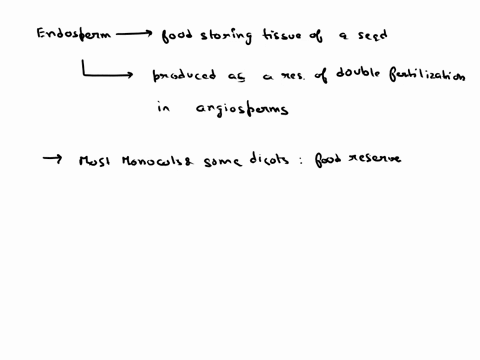 Endosperm → food storing tissue of a seed
→ produced as a res. of double fertilization
in angiosperms
→ Most Monocots & some dicots : food reserve